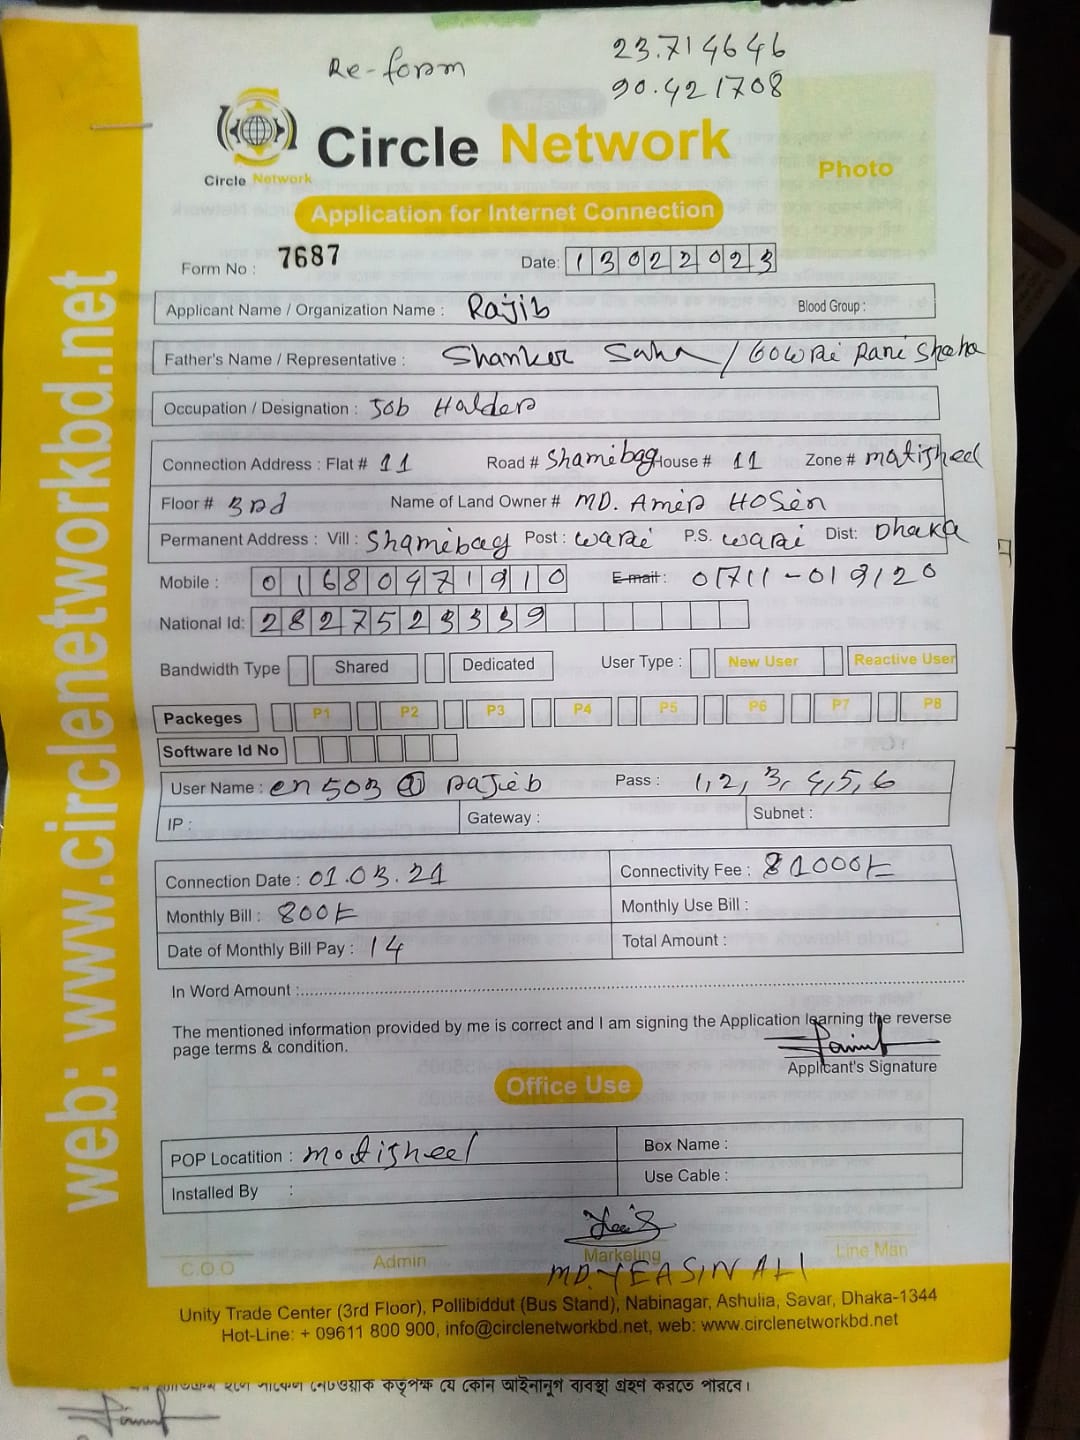 Re-form
23.714646
90.421708
Circle Network
Circle Network
Photo
Application for Internet Connection
Form No : 7687
Date: 13022023
Applicant Name / Organization Name : Rajib Blood Group :
Father's Name / Representative : Shanker Saha / Gowri Rani Shaha
Occupation / Designation : Job Holder
Connection Address : Flat # 11 Road # Shamibag House # 11 Zone # motijheel
Floor # 3rd Name of Land Owner # MD. Amir HOSen
Permanent Address : Vill : Shamibag Post : wari P.S. wari Dist: Dhaka
Mobile : 01680471910 E-mail: 01711-019120
National Id: 2827523339
Bandwidth Type Shared Dedicated User Type : New User Reactive User
Packeges P1 P2 P3 P4 P5 P6 P7 P8
Software Id No
User Name : en503@rajib Pass : 1,2,3,4,5,6
IP : Gateway : Subnet :
Connection Date : 01.03.21 Connectivity Fee : 1000/=
Monthly Bill : 800/= Monthly Use Bill :
Date of Monthly Bill Pay : 14 Total Amount :
In Word Amount :
The mentioned information provided by me is correct and I am signing the Application learning the reverse
page terms & condition.
Applicant's Signature
Office Use
POP Locatition : motijheel Box Name :
Installed By : Use Cable :
C.O.O Admin Marketing Line Man
MD. YEASIN ALI
Unity Trade Center (3rd Floor), Pollibiddut (Bus Stand), Nabinagar, Ashulia, Savar, Dhaka-1344
Hot-Line: + 09611 800 900, info@circlenetworkbd.net, web: www.circlenetworkbd.net
web: www.circlenetworkbd.net
হলে সার্কেল নেটওয়াক কর্তৃপক্ষ যে কোন আইনানুগ ব্যবস্থা গ্রহণ করতে পারবে।